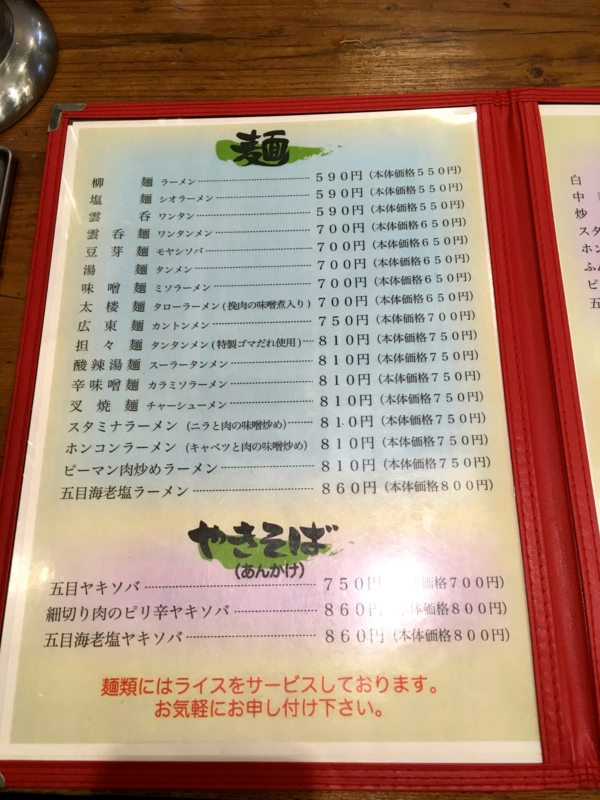 麺
柳麺 ラーメン 590円(本体価格550円)
塩麺 シオラーメン 590円(本体価格550円)
雲呑 ワンタン 590円(本体価格550円)
雲呑麺 ワンタンメン 700円(本体価格650円)
豆芽麺 モヤシソバ 700円(本体価格650円)
湯麺 タンメン 700円(本体価格650円)
味噌麺 ミソラーメン 700円(本体価格650円)
太楼麺 タローラーメン(挽肉の味噌煮入り) 700円(本体価格650円)
広東麺 カントンメン 750円(本体価格700円)
担々麺 タンタンメン(特製ゴマだれ使用) 810円(本体価格750円)
酸辣湯麺 スーラータンメン 810円(本体価格750円)
辛味噌麺 カラミソラーメン 810円(本体価格750円)
叉焼麺 チャーシューメン 810円(本体価格750円)
スタミナラーメン(ニラと肉の味噌炒め) 810円(本体価格750円)
ホンコンラーメン(キャベツと肉の味噌炒め) 810円(本体価格750円)
ピーマン肉炒めラーメン 810円(本体価格750円)
五目海老塩ラーメン 860円(本体価格800円)
やきそば
(あんかけ)
五目ヤキソバ 750円 価格700円)
細切り肉のピリ辛ヤキソバ 860円 体価格800円)
五目海老塩ヤキソバ 860円(本体価格800円)
麺類にはライスをサービスしております。
お気軽にお申し付け下さい。
白
中
炒
スタ
ホン
ふ
ピ
五